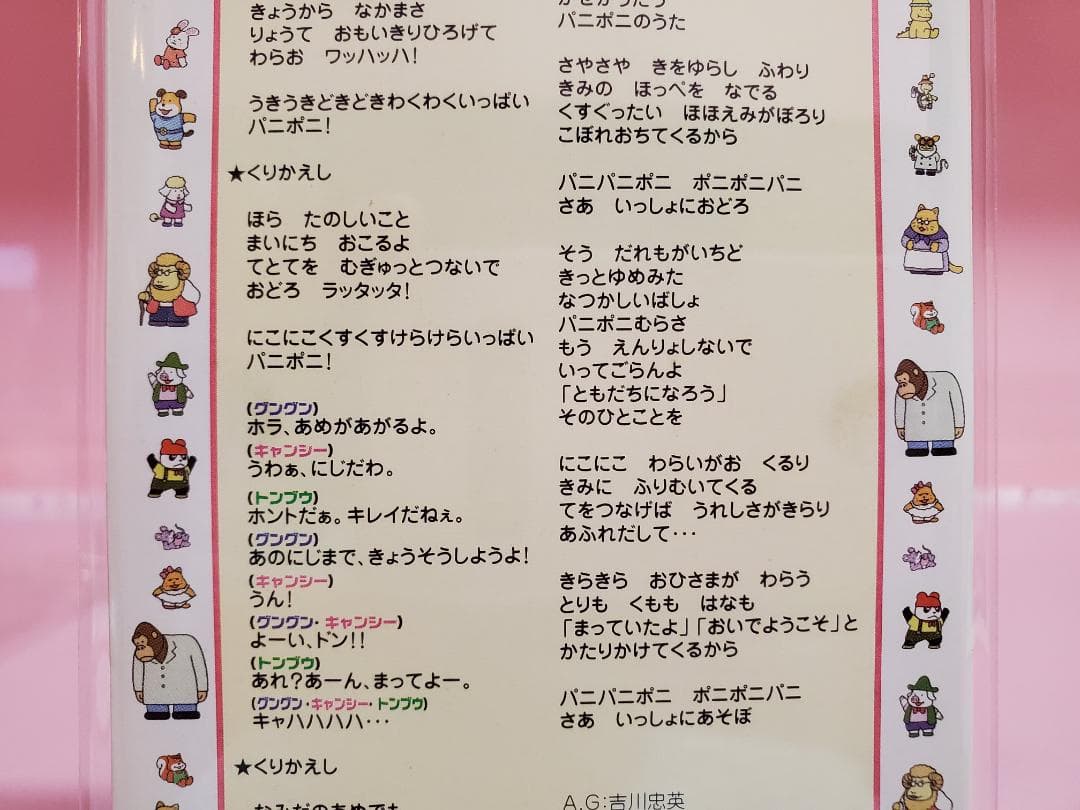 きょうから　なかまさ
りょうて　おもいきりひろげて
わらお　ワッハッハ!
うきうきどきどきわくわくいっぱい
パニポニ!
★くりかえし
ほら　たのしいこと
まいにち　おこるよ
てとてを　むぎゅっとつないで
おどろ　ラッタッタ!
にこにこくすくすけらけらいっぱい
パニポニ!
(グングン)
ホラ、あめがあがるよ。
(キャンシー)
うわぁ、にじだわ。
(トンブウ)
ホントだぁ。キレイだねぇ。
(グングン)
あのにじまで、きょうそうしようよ!
(キャンシー)
うん!
(グングン・キャンシー)
よーい、ドン!!
(トンブウ)
あれ?あーん、まってよー。
(グングン・キャンシー・トンブウ)
キャハハハハ・・・
★くりかえし
なみだのあめでも
パニポニのうた
さやさや　きをゆらし　ふわり
きみの　ほっぺを　なでる
くすぐったい　ほほえみがぽろり
こぼれおちてくるから
パニパニポニ　ポニポニパニ
さあ　いっしょにおどろ
そう　だれもがいちど
きっとゆめみた
なつかしいばしょ
パニポニむらさ
もう　えんりょしないで
いってごらんよ
「ともだちになろう」
そのひとことを
にこにこ　わらいがお　くるり
きみに　ふりむいてくる
てをつなげば　うれしさがきらり
あふれだして・・・
きらきら　おひさまが　わらう
とりも　くもも　はなも
「まっていたよ」「おいでようこそ」と
かたりかけてくるから
パニパニポニ　ポニポニパニ
さあ　いっしょにあそぼ
A.G:吉川忠英